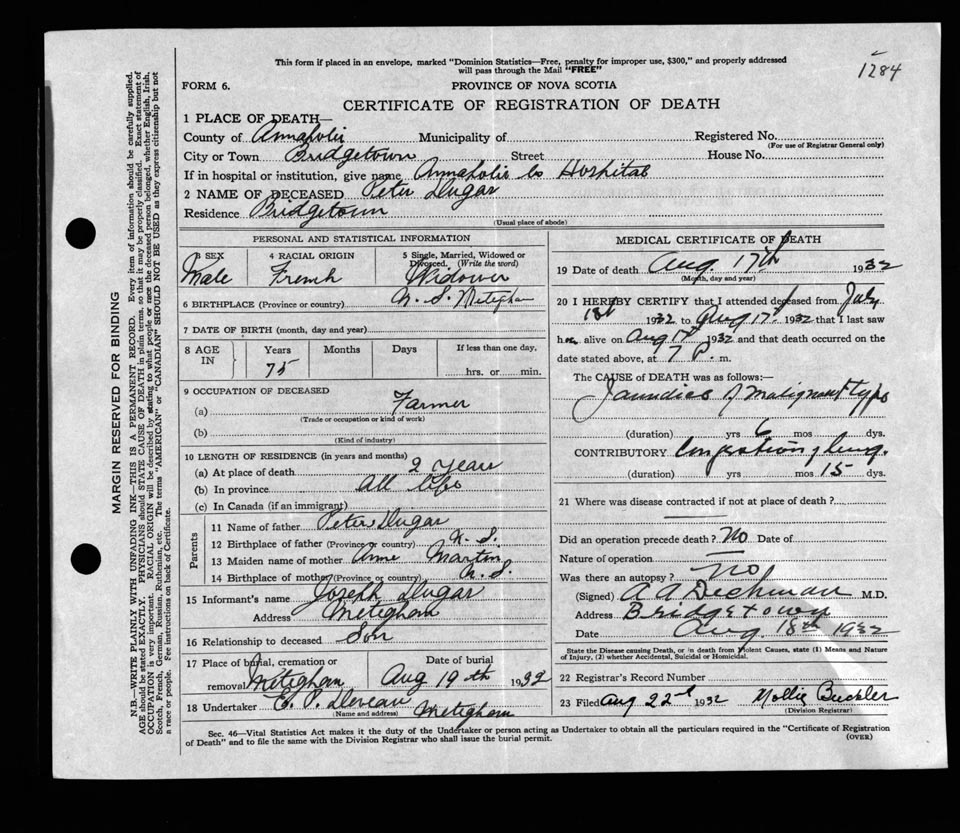 1284
This form if placed in an envelope, marked "Dominion Statistics—Free, penalty for improper use, $300," and properly addressed
will pass through the Mail "FREE"
FORM 6.
PROVINCE OF NOVA SCOTIA
CERTIFICATE OF REGISTRATION OF DEATH
1 PLACE OF DEATH—
County of Annapolis Municipality of Registered No.
(For use of Registrar General only)
City or Town Bridgetown Street House No.
If in hospital or institution, give name Annapolis Co Hospital
2 NAME OF DECEASED Peter Dugas
Residence Bridgetown
(Usual place of abode)
PERSONAL AND STATISTICAL INFORMATION
3 SEX 4 RACIAL ORIGIN 5 Single, Married, Widowed or
Divorced. (Write the word)
Male French Widower
6 BIRTHPLACE (Province or country) N. S. Meteghan
7 DATE OF BIRTH (month, day and year)
8 AGE IN Years Months Days If less than one day,
75 hrs. or min.
9 OCCUPATION OF DECEASED
(a) Farmer
(Trade or occupation or kind of work)
(b)
(Kind of industry)
10 LENGTH OF RESIDENCE (in years and months)
(a) At place of death 2 years
(b) In province All life
(c) In Canada (if an immigrant)
Parents
11 Name of father Peter Dugas
12 Birthplace of father (Province or country) N. S.
13 Maiden name of mother Anne Martin
14 Birthplace of mother (Province or country) N. S.
15 Informant's name Joseph Dugas
Address Meteghan
16 Relationship to deceased Son
17 Place of burial, cremation or Date of burial
removal Meteghan Aug 19th 1932
18 Undertaker E. P. Deveau Meteghan
(Name and address)
MEDICAL CERTIFICATE OF DEATH
19 Date of death Aug. 17th 1932
(Month, day and year)
20 I HEREBY CERTIFY that I attended deceased from July
1st 1932 to Aug 17. 1932 that I last saw
him alive on Aug 17 1932 and that death occurred on the
date stated above, at 7 P. m.
The CAUSE of DEATH was as follows:—
Jaundice of malignant type
(duration) yrs 6 mos dys.
CONTRIBUTORY Congestion of lung.
(duration) yrs mos 15 dys.
21 Where was disease contracted if not at place of death?
Did an operation precede death? No Date of
Nature of operation
Was there an autopsy? No
(Signed) A A Dechman M.D.
Address Bridgetown
Date Aug. 18th 1932
State the Disease causing Death, or in death from Violent Causes, state (1) Means and Nature
of Injury, (2) whether Accidental, Suicidal or Homicidal.
22 Registrar's Record Number
23 Filed Aug 22d 1932 Mollie Buckler
(Division Registrar)
Sec. 46—Vital Statistics Act makes it the duty of the Undertaker or person acting as Undertaker to obtain all the particulars required in the "Certificate of Registration
of Death" and to file the same with the Division Registrar who shall issue the burial permit.
(OVER)
MARGIN RESERVED FOR BINDING
N.B.—WRITE PLAINLY WITH UNFADING INK—THIS IS A PERMANENT RECORD. Every item of information should be carefully supplied.
AGE should be stated EXACTLY. PHYSICIANS should STATE CAUSE OF DEATH in plain terms, so that it may be properly classified. Exact statement of
OCCUPATION is very important. RACIAL ORIGIN will be described by stating to what people or race the deceased person belonged, whether English, Irish,
Scotch, French, German, Russian, Ruthenian, etc. The terms "AMERICAN" or "CANADIAN" SHOULD NOT BE USED as they express citizenship but not
a race or people. See instructions on back of Certificate.